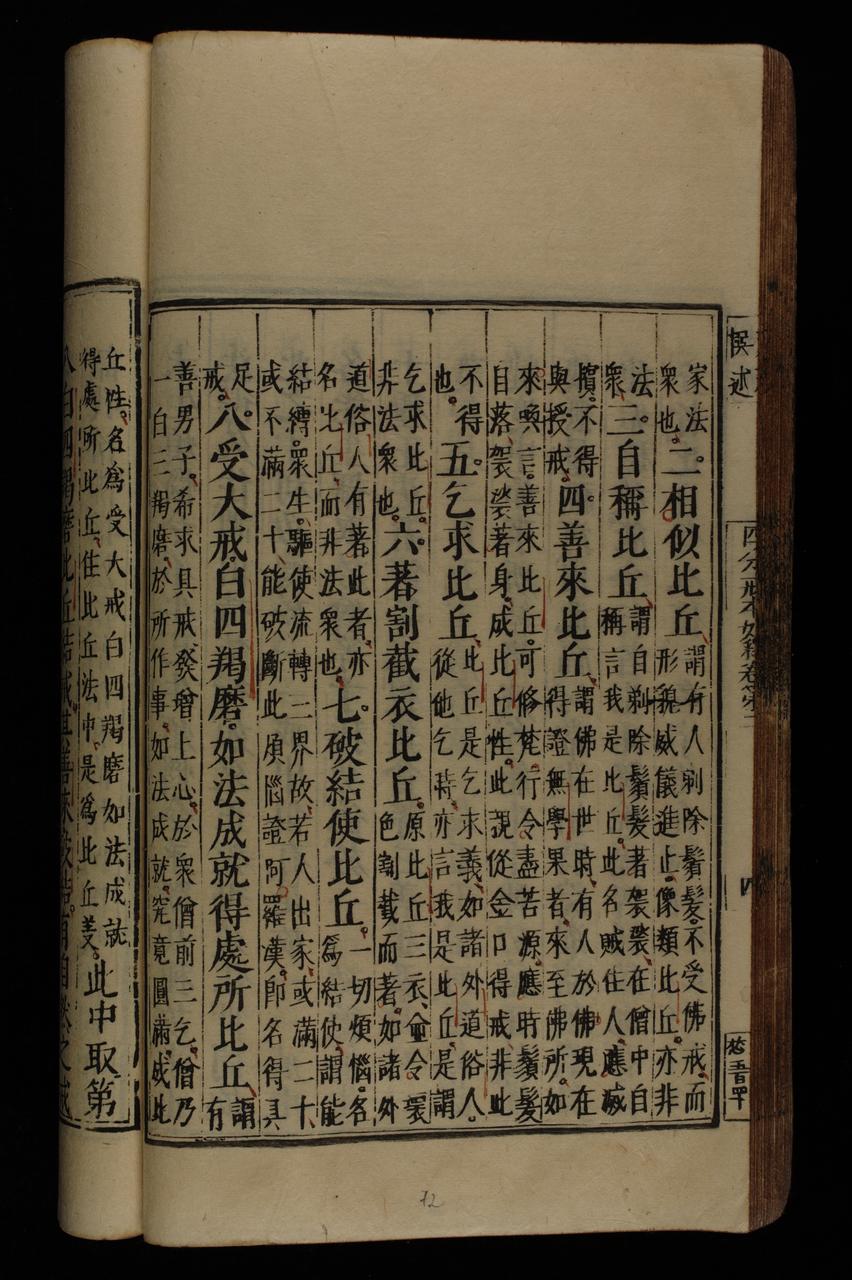 家法衆也。二。相似比丘。謂有人剃除鬚髮。不受佛戒。而形貌威儀進止。像類比丘。亦非
法衆。三。自稱比丘。謂自剃除鬚髮著袈裟。在僧中自稱言我是比丘。此名賊住人。應滅
擯。不得與授戒。四。善來比丘。謂佛在世時。有人於佛現在得證無學果者。來至佛所。如
來喚言。善來比丘。可修梵行。令盡苦源。應時鬚髮自落。袈裟著身。成比丘性。此說從金口得戒。非此
不得也。五。乞求比丘。比丘是乞求義。如諸外道俗人。從他乞時。亦言我是比丘。是謂
乞求比丘。非法衆也。六。著割截衣比丘。原比丘三衣。僉令壞色割截而著。如諸外
道俗人有著此者。亦名比丘。而非法衆也。七。破結使比丘。一切煩惱。名爲結使。謂能
結縛衆生。驅使流轉三界故。若人出家。或滿二十。或不滿二十。能破斷此煩惱。證阿羅漢。即名得具
足戒。八。受大戒。白四羯磨。如法成就得處所比丘。謂有
善男子。希求具戒。發增上心。於衆僧前三乞。僧乃一白三羯磨。於所作事。如法成就。究竟圓滿。成此
丘性。名爲受大戒白四羯磨如法成就得處所比丘。住比丘法中。是爲比丘義。此中取第
四分戒本如釋卷第二
四
12